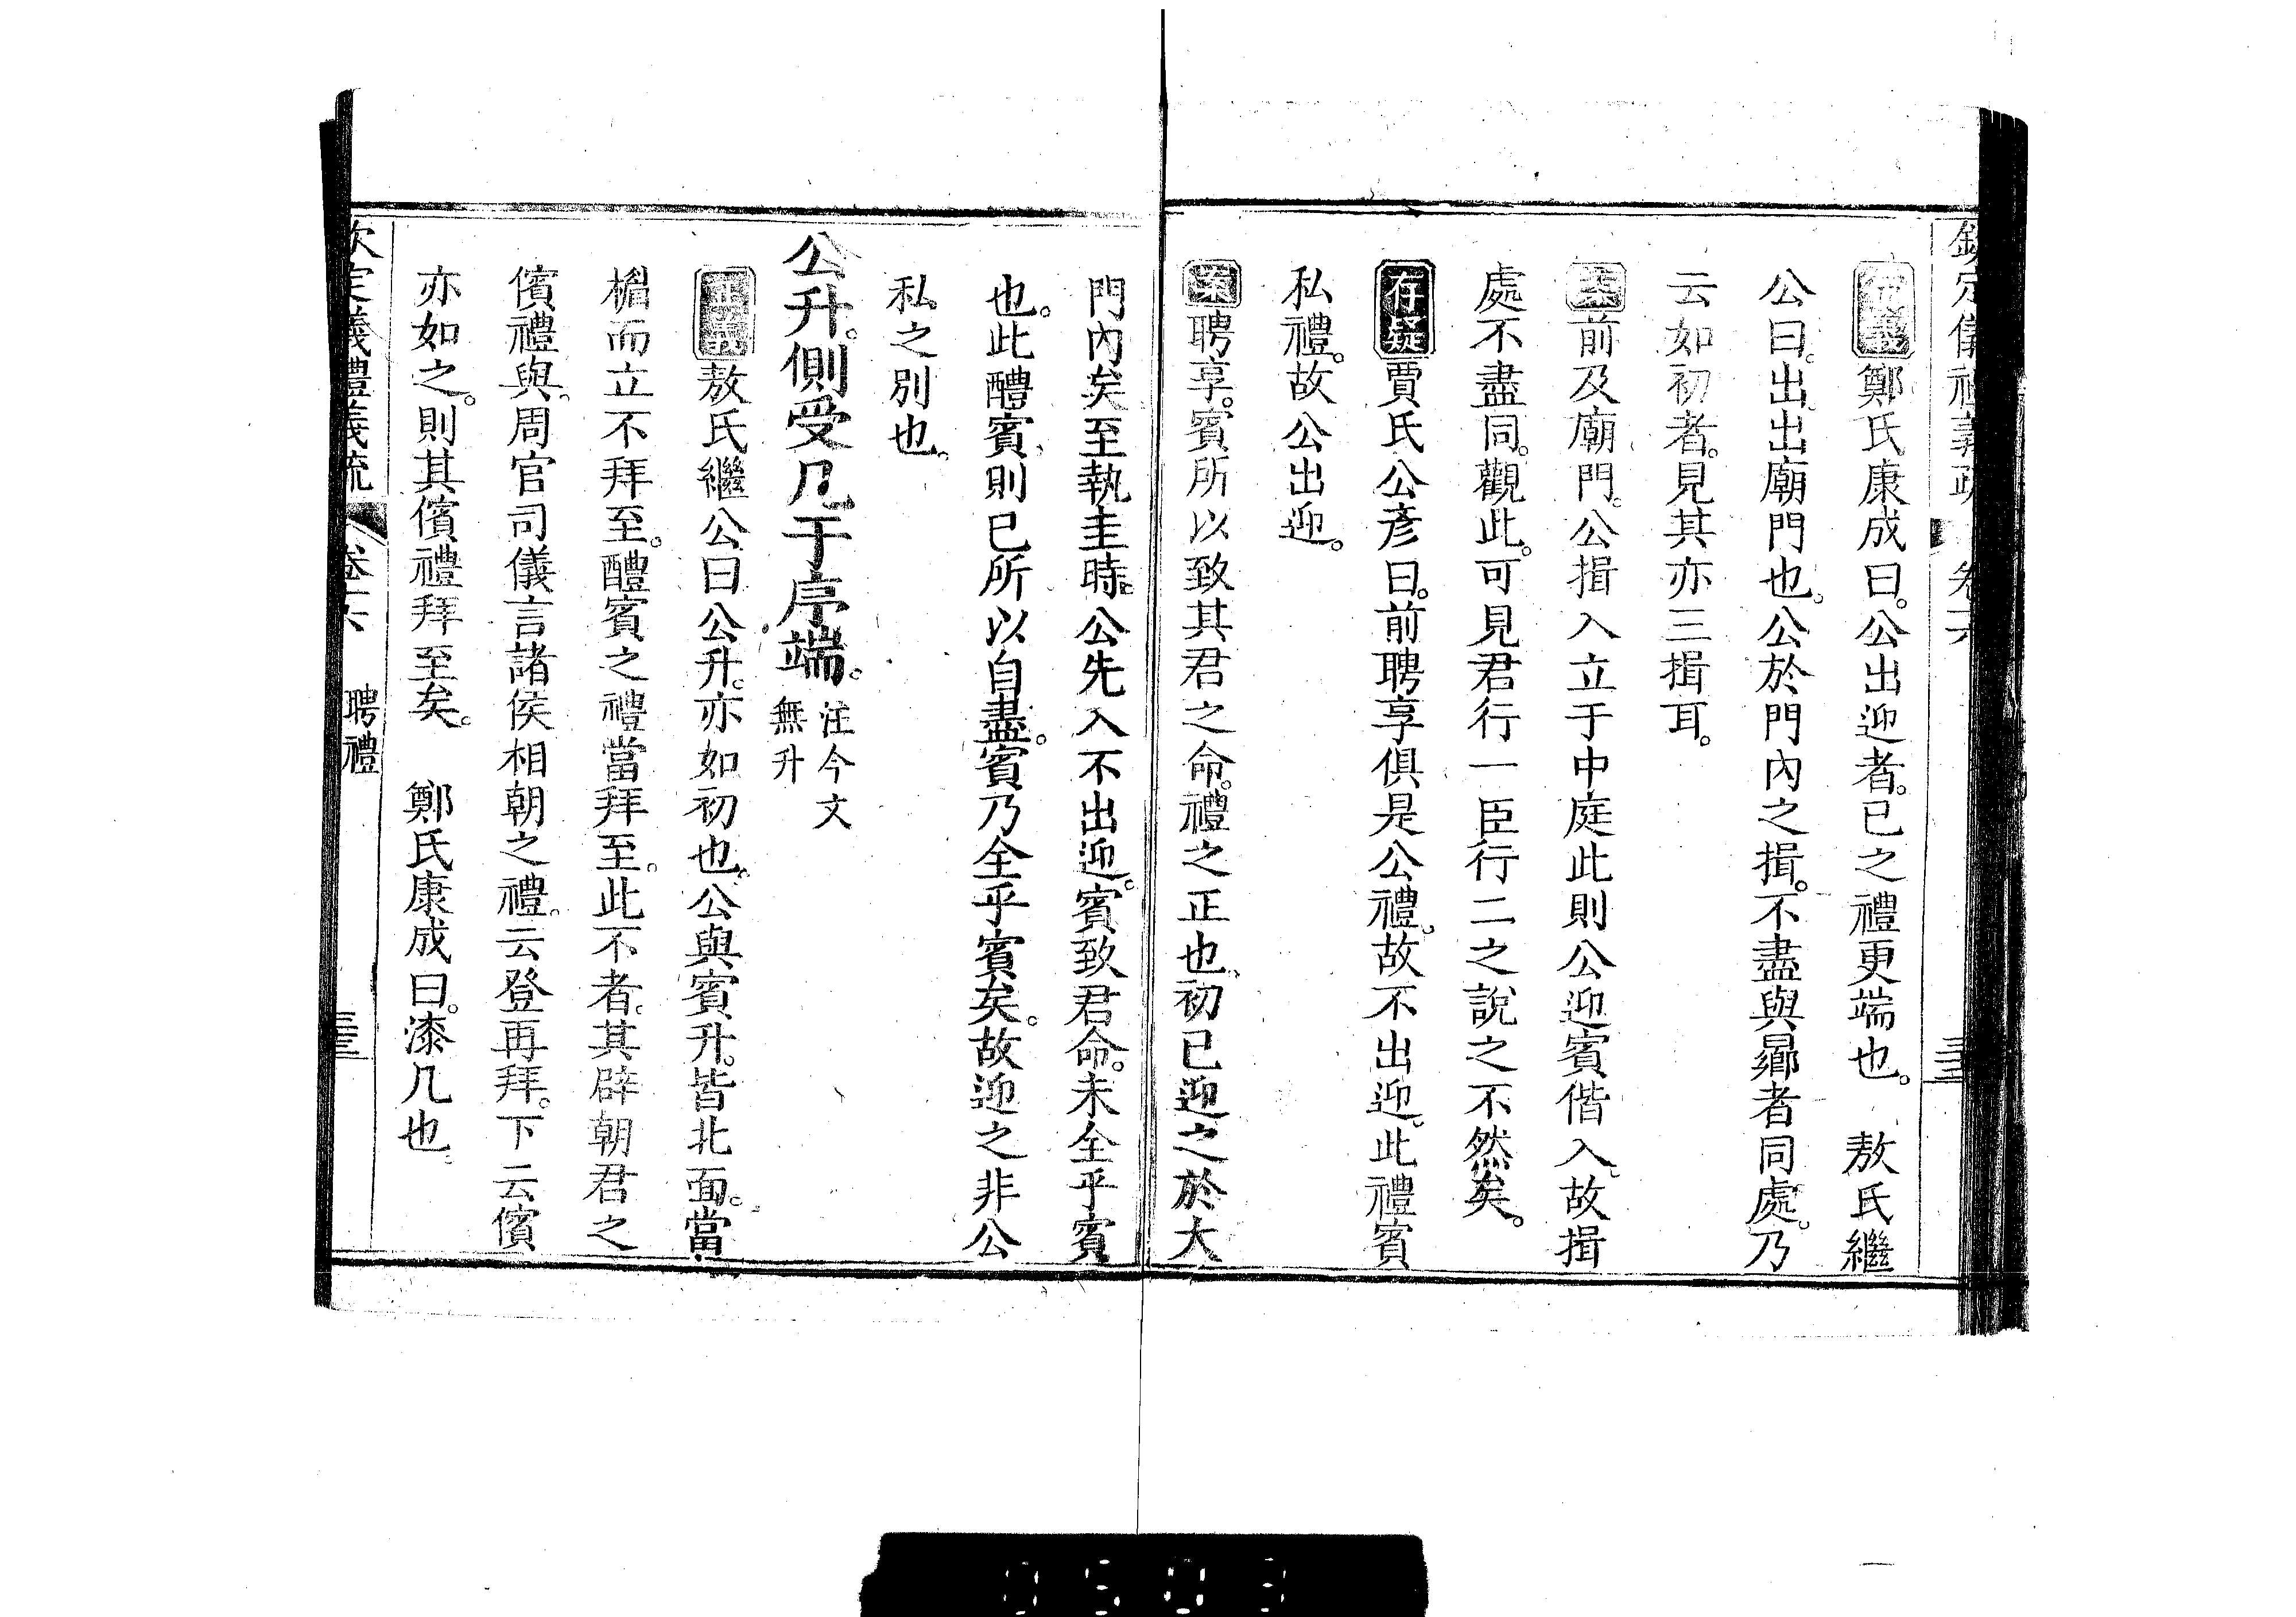 欽定儀禮義疏 卷十六
正義鄭氏康成曰。公出迎者。已之禮更端也。 敖氏繼
公曰。出。出廟門也。公於門內之揖。不盡與曏者同處。乃
云如初者。見其亦三揖耳。
案前及廟門。公揖入立于中庭此則公迎賓偕入。故揖
處不盡同。觀此。可見君行一臣行二之說之不然矣。
存疑賈氏公彥曰。前聘享俱是公禮。故不出迎。此禮賓
私禮。故公出迎。
案聘享。賓所以致其君之命。禮之正也。初已迎之於大
門內矣至執圭時。公先入不出迎。賓致君命。未全乎賓
也。此醴賓。則已所以自盡。賓乃全乎賓矣。故迎之非公
私之別也。
公升。側受几于序端。注今文無升
正義敖氏繼公曰公升。亦如初也。公與賓升。皆北面。當
楣而立不拜至。醴賓之禮當拜至。此不者。其辟朝君之
儐禮與。周官司儀言諸侯相朝之禮。云登再拜。下云儐
亦如之。則其儐禮拜至矣。 鄭氏康成曰。漆几也。
欽定儀禮義疏 卷十六 聘禮